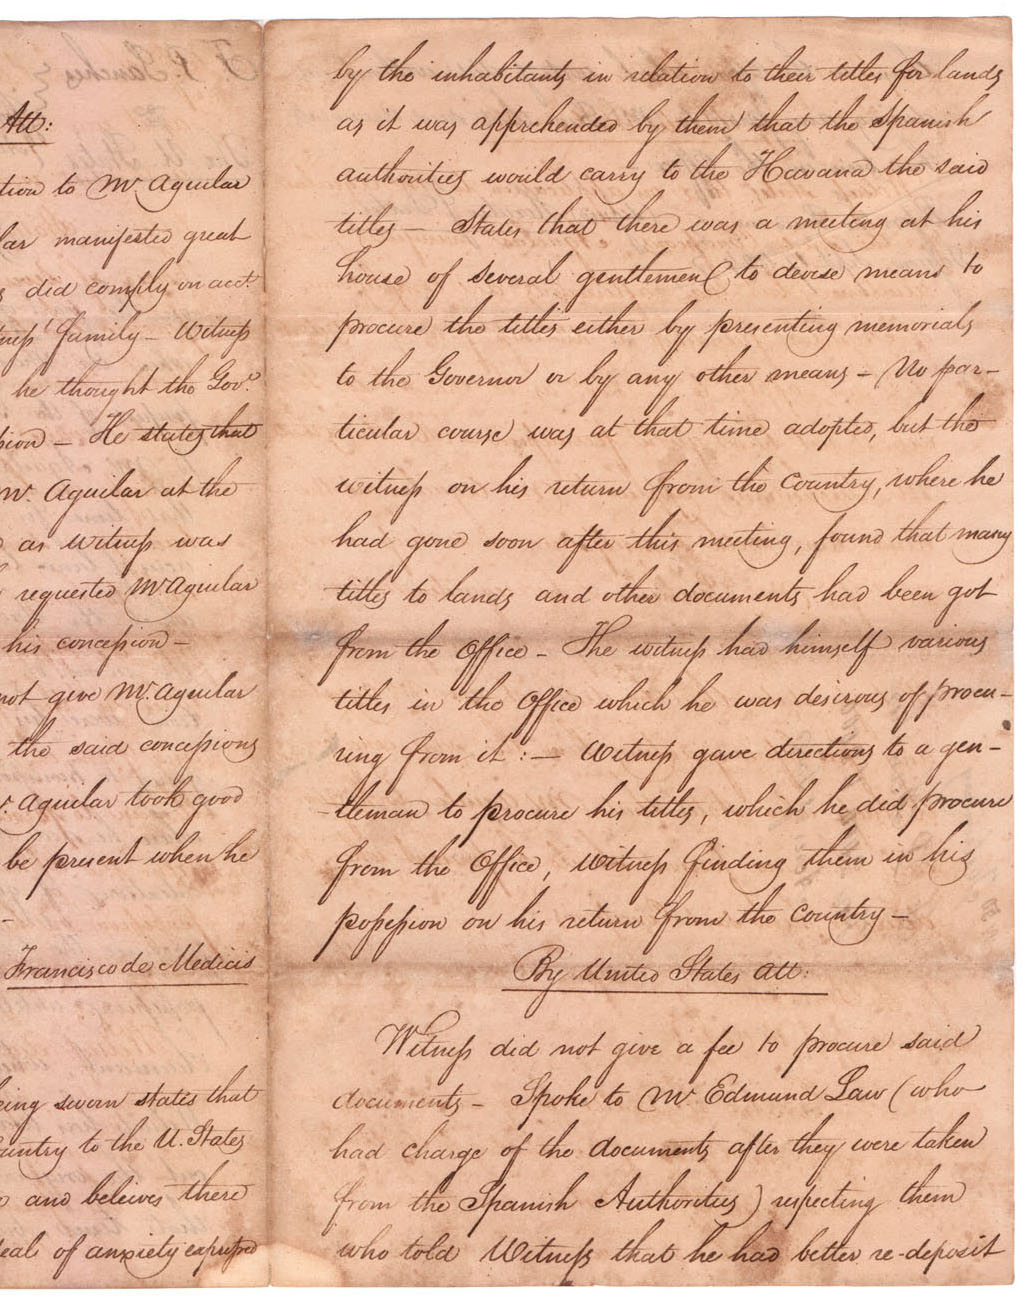 Att:
tion to Mr Aguilar
lar manifested great
s did comply on acct.
ness' family - Witness
he thought the Govr.
sion - He states that
Mr. Aguilar at the
as Witness was
requested Mr Aguilar
his concession -
not give Mr. Aguilar
the said concessions
r. Aguilar took good
be present when he
-
Francisco de Medicis
eing sworn states that
untry to the U. States
and beleives there
deal of anxiety expressed
by the inhabitants in relation to their titles for lands
as it was apprehended by them that the Spanish
authorities would carry to the Havana the said
titles - States that there was a meeting at his
house of several gentlemen to devise means to
procure the titles either by presenting memorials
to the Governor or by any other means - No par-
ticular course was at that time adopted, but the
witness on his return from the Country, where he
had gone soon after this meeting, found that many
titles to lands and other documents had been got
from the Office - The witness had himself various
titles in the Office which he was desirous of procu-
ring from it : - Witness gave directions to a gen-
tleman to procure his titles, which he did procure
from the Office, Witness finding them in his
possession on his return from the Country -
By United States Att:
Witness did not give a fee to procure said
documents - Spoke to Mr Edmund Law (who
had charge of the documents after they were taken
from the Spanish Authorities) respecting them
who told Witness that he had better re-deposit